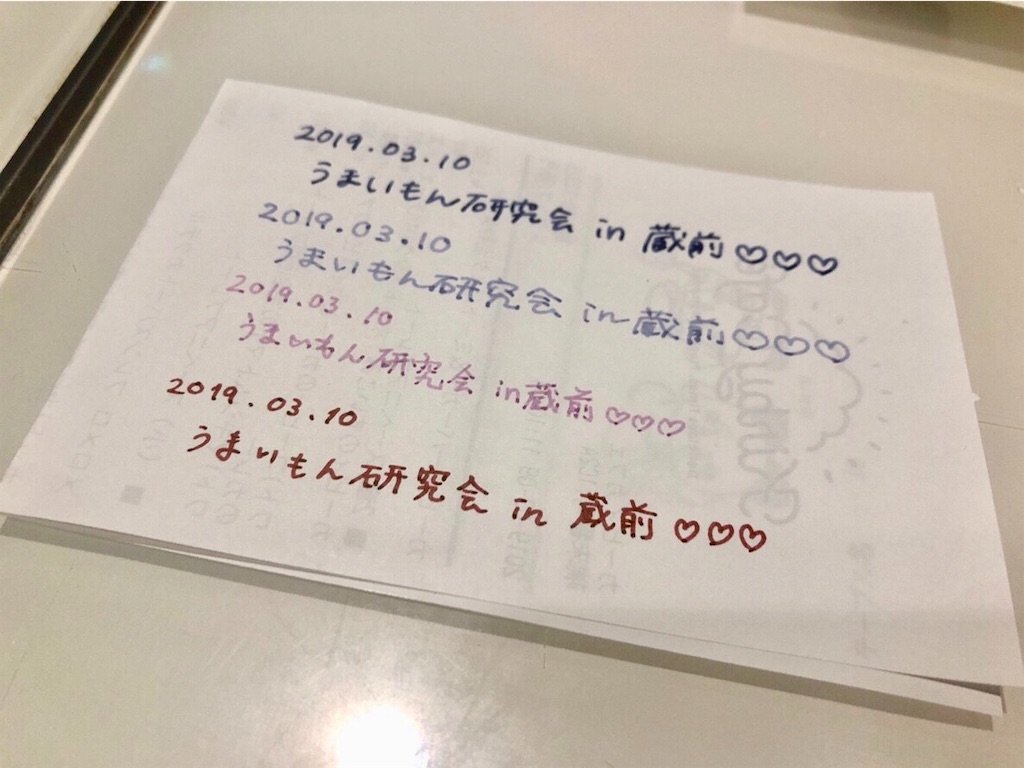 2019.03.10
うまいもん研究会 in 蔵前♡♡♡
2019.03.10
うまいもん研究会 in 蔵前♡♡♡
2019.03.10
うまいもん研究会 in蔵前♡♡♡
2019.03.10
うまいもん研究会 in 蔵前♡♡♡